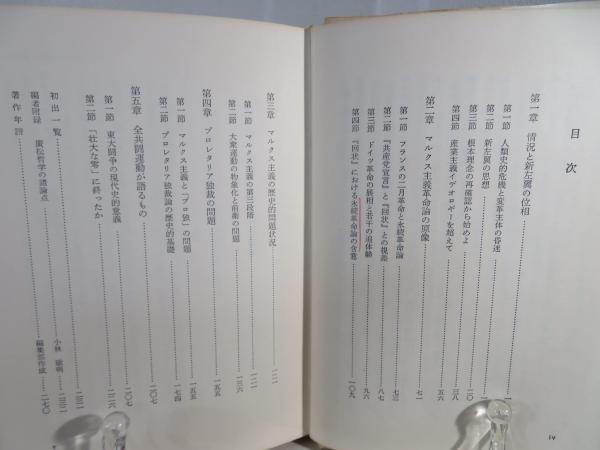 目次
第一章 情況と新左翼の位相 一
第一節 人類史的危機と変革主体の昏迷 一
第二節 新左翼の思想
第三節 根本理念の再確認から始めよ 二〇
第四節 産業主義イデオロギーを超えて 三八
第二章 マルクス主義革命論の原像 七一
第一節 フランスの二月革命と永続革命論 七三
第二節 『共産党宣言』と『回状』との視差 八七
第三節 ドイツ革命の展相と若干の追体験 九六
第四節 『回状』における永続革命論の含意 一〇九
iv
第三章 マルクス主義の歴史的問題状況 一二一
第一節 マルクス主義の第三段階 一二一
第二節 大衆運動の物象化と前衛の問題 一三六
第四章 プロレタリア独裁の問題 一五五
第一節 マルクス主義と「プロ独」の問題 一五五
第二節 プロレタリア独裁論の歴史的基礎 一七四
第五章 全共闘運動が語るもの 二〇七
第一節 東大闘争の現代史的意義 二〇七
第二節 「壮大な零」に終ったか 二二六
初出一覧 二三一
編者附録 廣松哲学の諸論点 小林敏明 二三二
著作年譜 編集部作成 二七〇